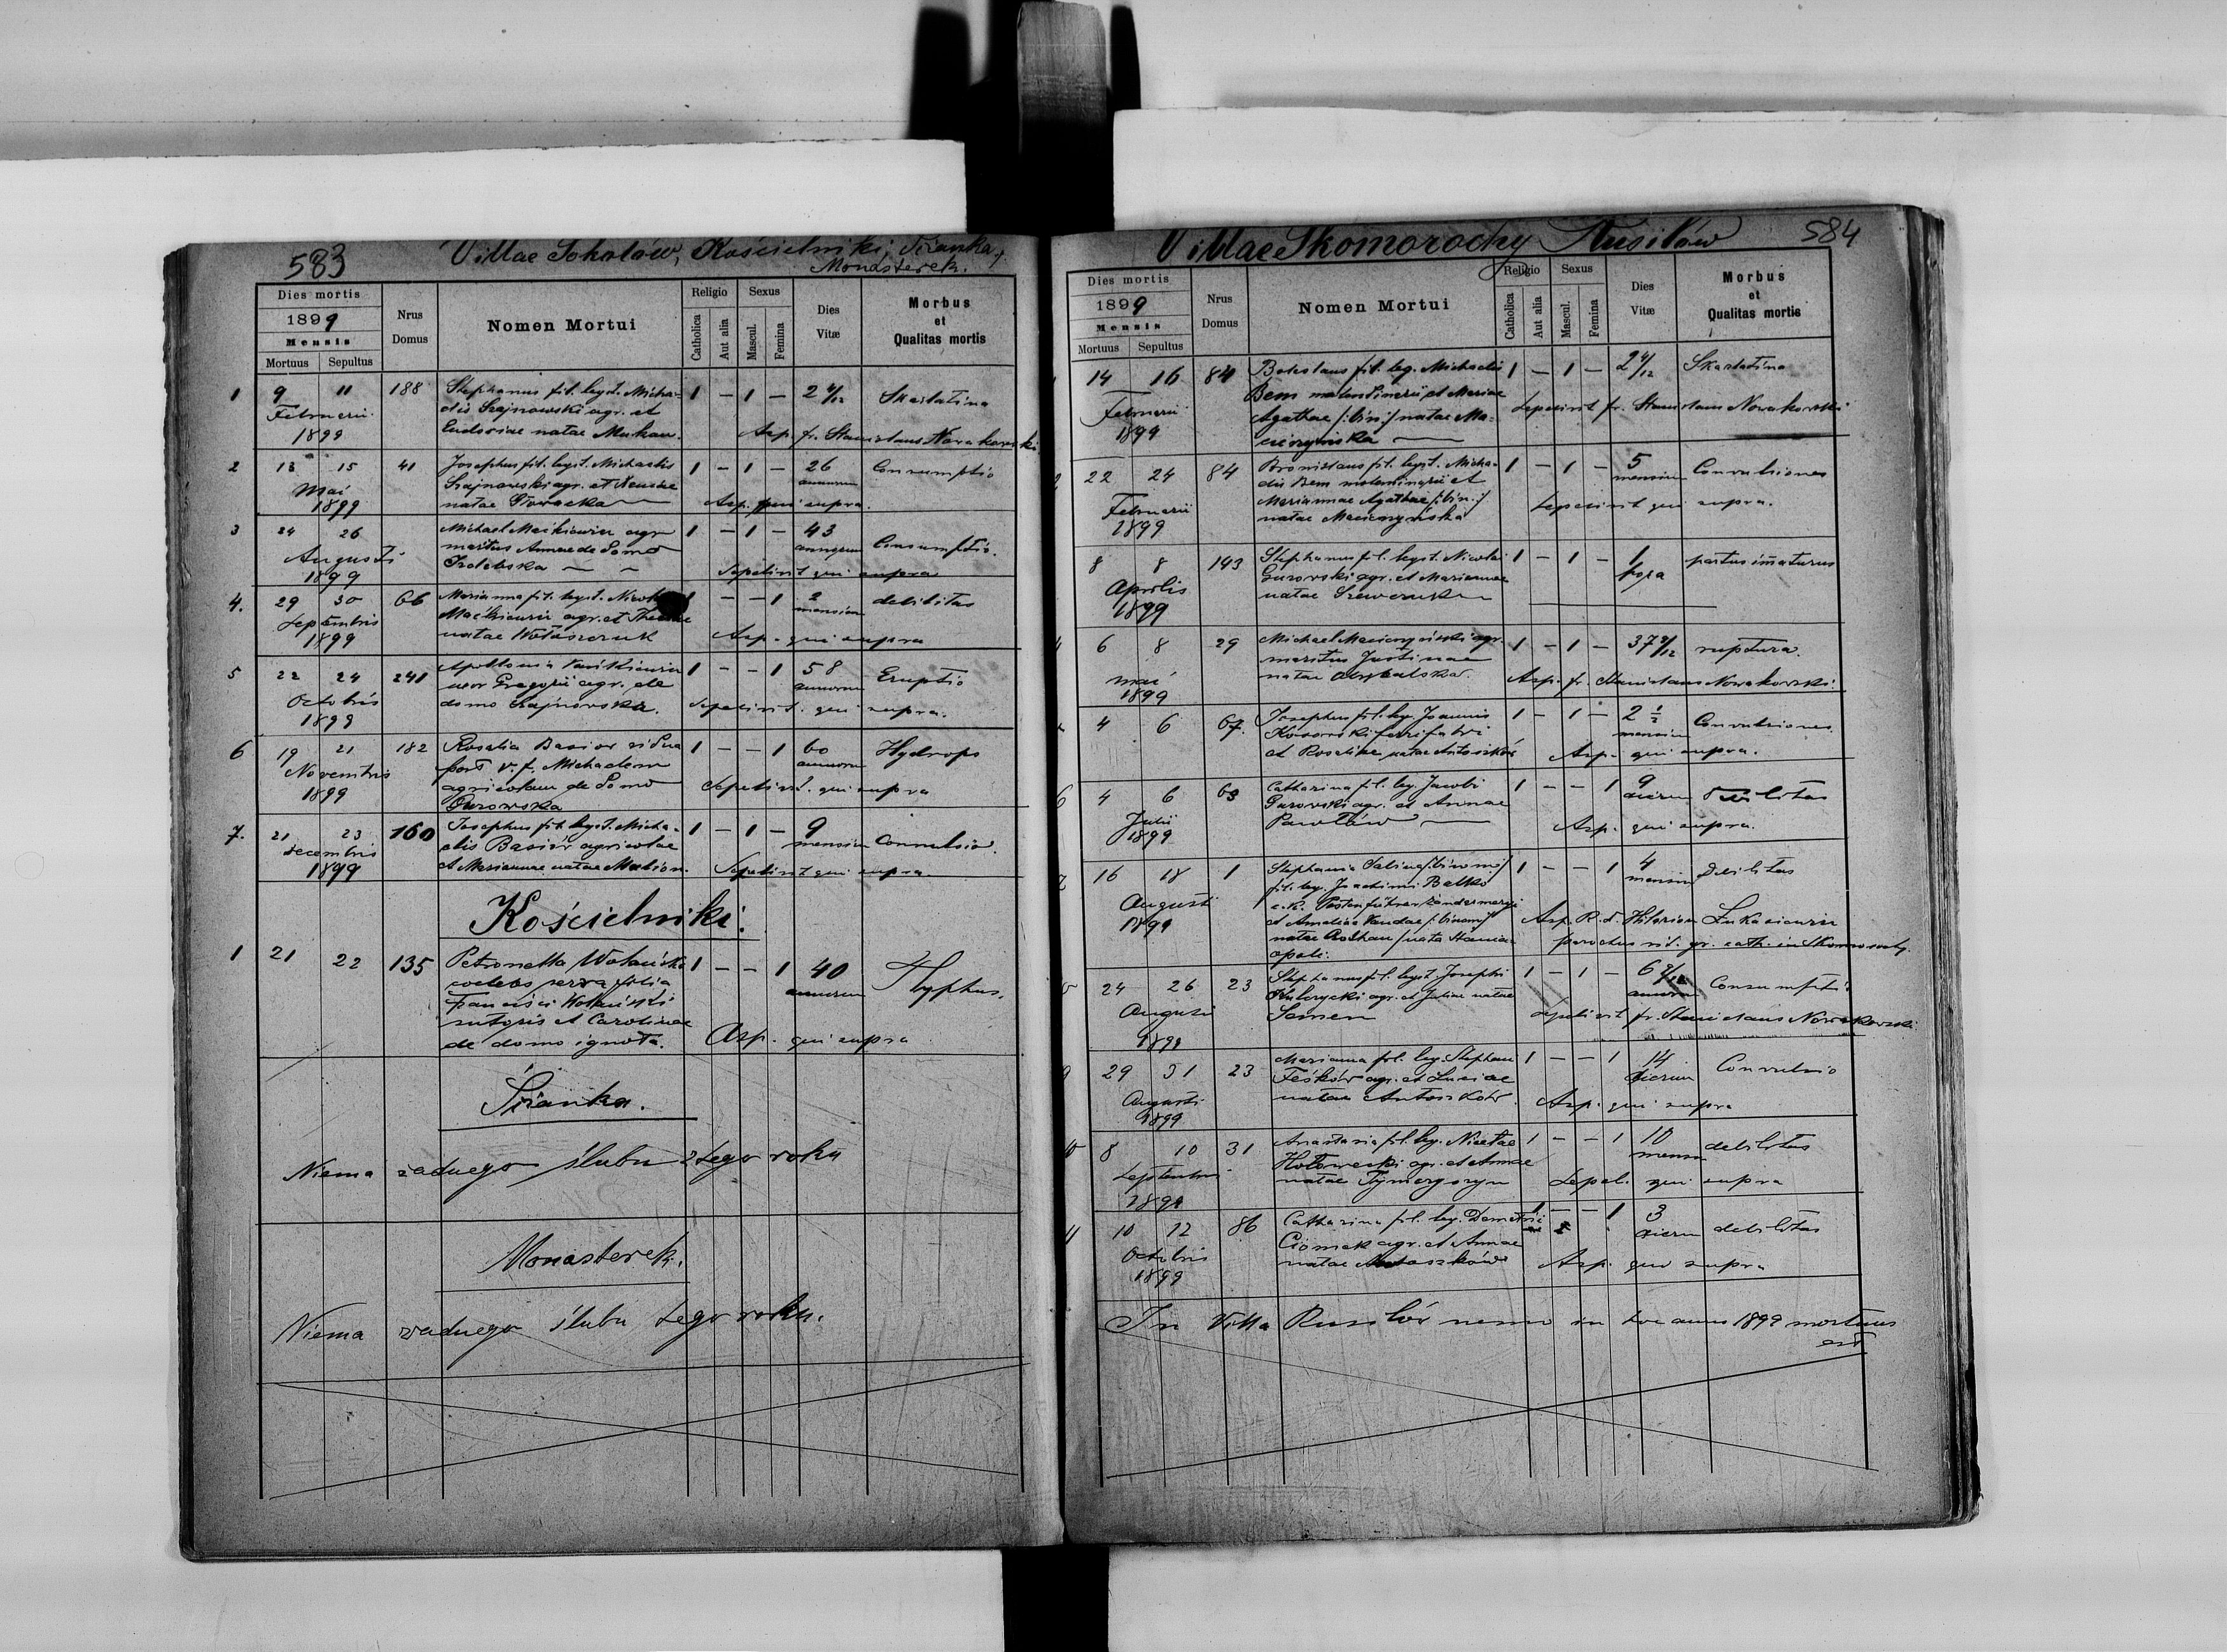 583
Villae Sokołów, Kościelniki, Ścianka,
Monasterek.
Dies mortis
1899
Mensis
Mortuus Sepultus
Nrus Domus
Nomen Mortui
Religio
Catholica
Aut alia
Sexus
Mascul.
Femina
Dies Vitæ
Morbus et Qualitas mortis
1 9 11 188 Stephanus fil. legit. Micha- 1 – 1 – 2 4/12 Skarlatina
Februarii elis Szajnowski agr. et
1899 Eudoxiae natae
Asp. fr. Stanislaus Nowakowski
2 13 15 41 Josephus fil. legit. Michaelis 1 – 1 – 26 annorum Consumptio
Mai Szajnowski agr. et
1899 natae Głowacka
Asp. qui supra.
3 24 26 Michael Maćkiewicz agr. 1 – 1 – 43 annorum Consumptio.
Augusti maritus Annae de domo
1899
Sepelivit qui supra
4. 29 30 66 Marianna fil. legit. 1 – – 1 2 mensium debilitas
Septembris Maćkiewicz agr. et
1899 natae Wołoszczuk
Asp. qui supra
5 22 24 241 Apollonia 1 – – 1 58 annorum Eruptio
Octobris uxor Gregorii agr. de
1899 domo Szajnowska.
Sepelivit. qui supra.
6 19 21 182 Rosalia Basior vidua 1 – – 1 60 annorum Hydrops
Novembris post v. f. Michaelem
1899 agricolam de domo
Gurowska
Sepelivit. qui supra
7. 21 23 160 Josephus fil. legit. Micha- 1 – 1 – 9 mensium Convulsio.
Decembris elis Basiór agricolae
1899 et Mariannae natae
Sepelivit qui supra.
Kościelniki:
1 21 22 135 Petronella Wolańska 1 – – 1 40 annorum Thyphus.
coelebs serva filia
Francisci Wolański
sutoris et Carolinae
de domo ignota.
Asp. qui supra
Ścianka.
Niema żadnego ślubu z tego roku
Monasterek.
Niema żadnego ślubu tego roku.
584
Villae Skomorochy Rusiłów
Dies mortis
1899
Mensis
Mortuus Sepultus
Nrus Domus
Nomen Mortui
Religio
Catholica
Aut alia
Sexus
Mascul.
Femina
Dies Vitæ
Morbus et Qualitas mortis
14 16 84 Boleslaus fil. leg. Michaelis 1 – 1 – 2 4/12 Skarlatina
Februarii Bem molendinarii et Mariae
1899 Agathae /:bin:/ natae Ma-
Sepelivit fr. Stanislaus Nowakowski
22 24 84 Bronislaus fil. legit. Micha- 1 – 1 – 5 mensium Convulsiones
Februarii elis Bem molendinarii et
1899 Mariannae Agathae /:bin:/
natae
Sepelivit qui supra.
8 8 143 Stephanus fil. legit. Nicolai 1 – 1 – 1 hora partus immaturus
Aprilis Gurowski agr. et Mariannae
1899 natae Szewczuk
6 8 29 Michael agr. 1 – 1 – ruptura.
Mai maritus Justinae
1899 natae
Asp. fr. Stanislaus Nowakowski.
4 6 67. Josephus fil. leg. Joannis 1 – 1 – 2 1/2 mensium Convulsiones
Kossowski ferrifabri
et Rosaliae natae Antoszków
Asp. qui supra.
4 6 63 Catharina fil. leg. Jacobi 1 – – 1 9 dierum debilitas
Julii Gurowski agr. et Annae
1899 Pawłów
Asp. qui supra.
16 18 1 Stephania Sabina /:binom:/ 1 – – 1 4 mensium Debilitas
Augusti fil. leg. Joachimi Balko
1899 c. k. Postenführer
et Amaliae Vandae /:binom:/
natae
Asp. R. d. Hilarion Łukasiewicz
parochus rit. gr. cath. in
24 26 23 Stephanus fil. legit. Josephi 1 – 1 – Consumptio
Augusti agr. et Juliae natae
1899 Semen
Sepelivit fr. Stanislaus Nowakowski
29 31 23 Marianna fil. leg. Stephani 1 – – 1 14 dierum Convulsio
Augusti Feśków agr. et Luciae
1899 natae Antoszków.
Asp. qui supra
8 10 31 Anastasia fil. leg. Nicetae 1 – – 1 10 mensium debilitas
Septembris agr. et Annae
1899 natae
Sepel. qui supra
10 12 86 Catharina fil. leg. Demetrii 1 – – 1 3 dierum debilitas
Octobris Ciomak agr. et Annae
1899 natae Antoszków
Asp. qui supra
In Villa Rusiłów nemo in hoc anno 1899 mortuus
est